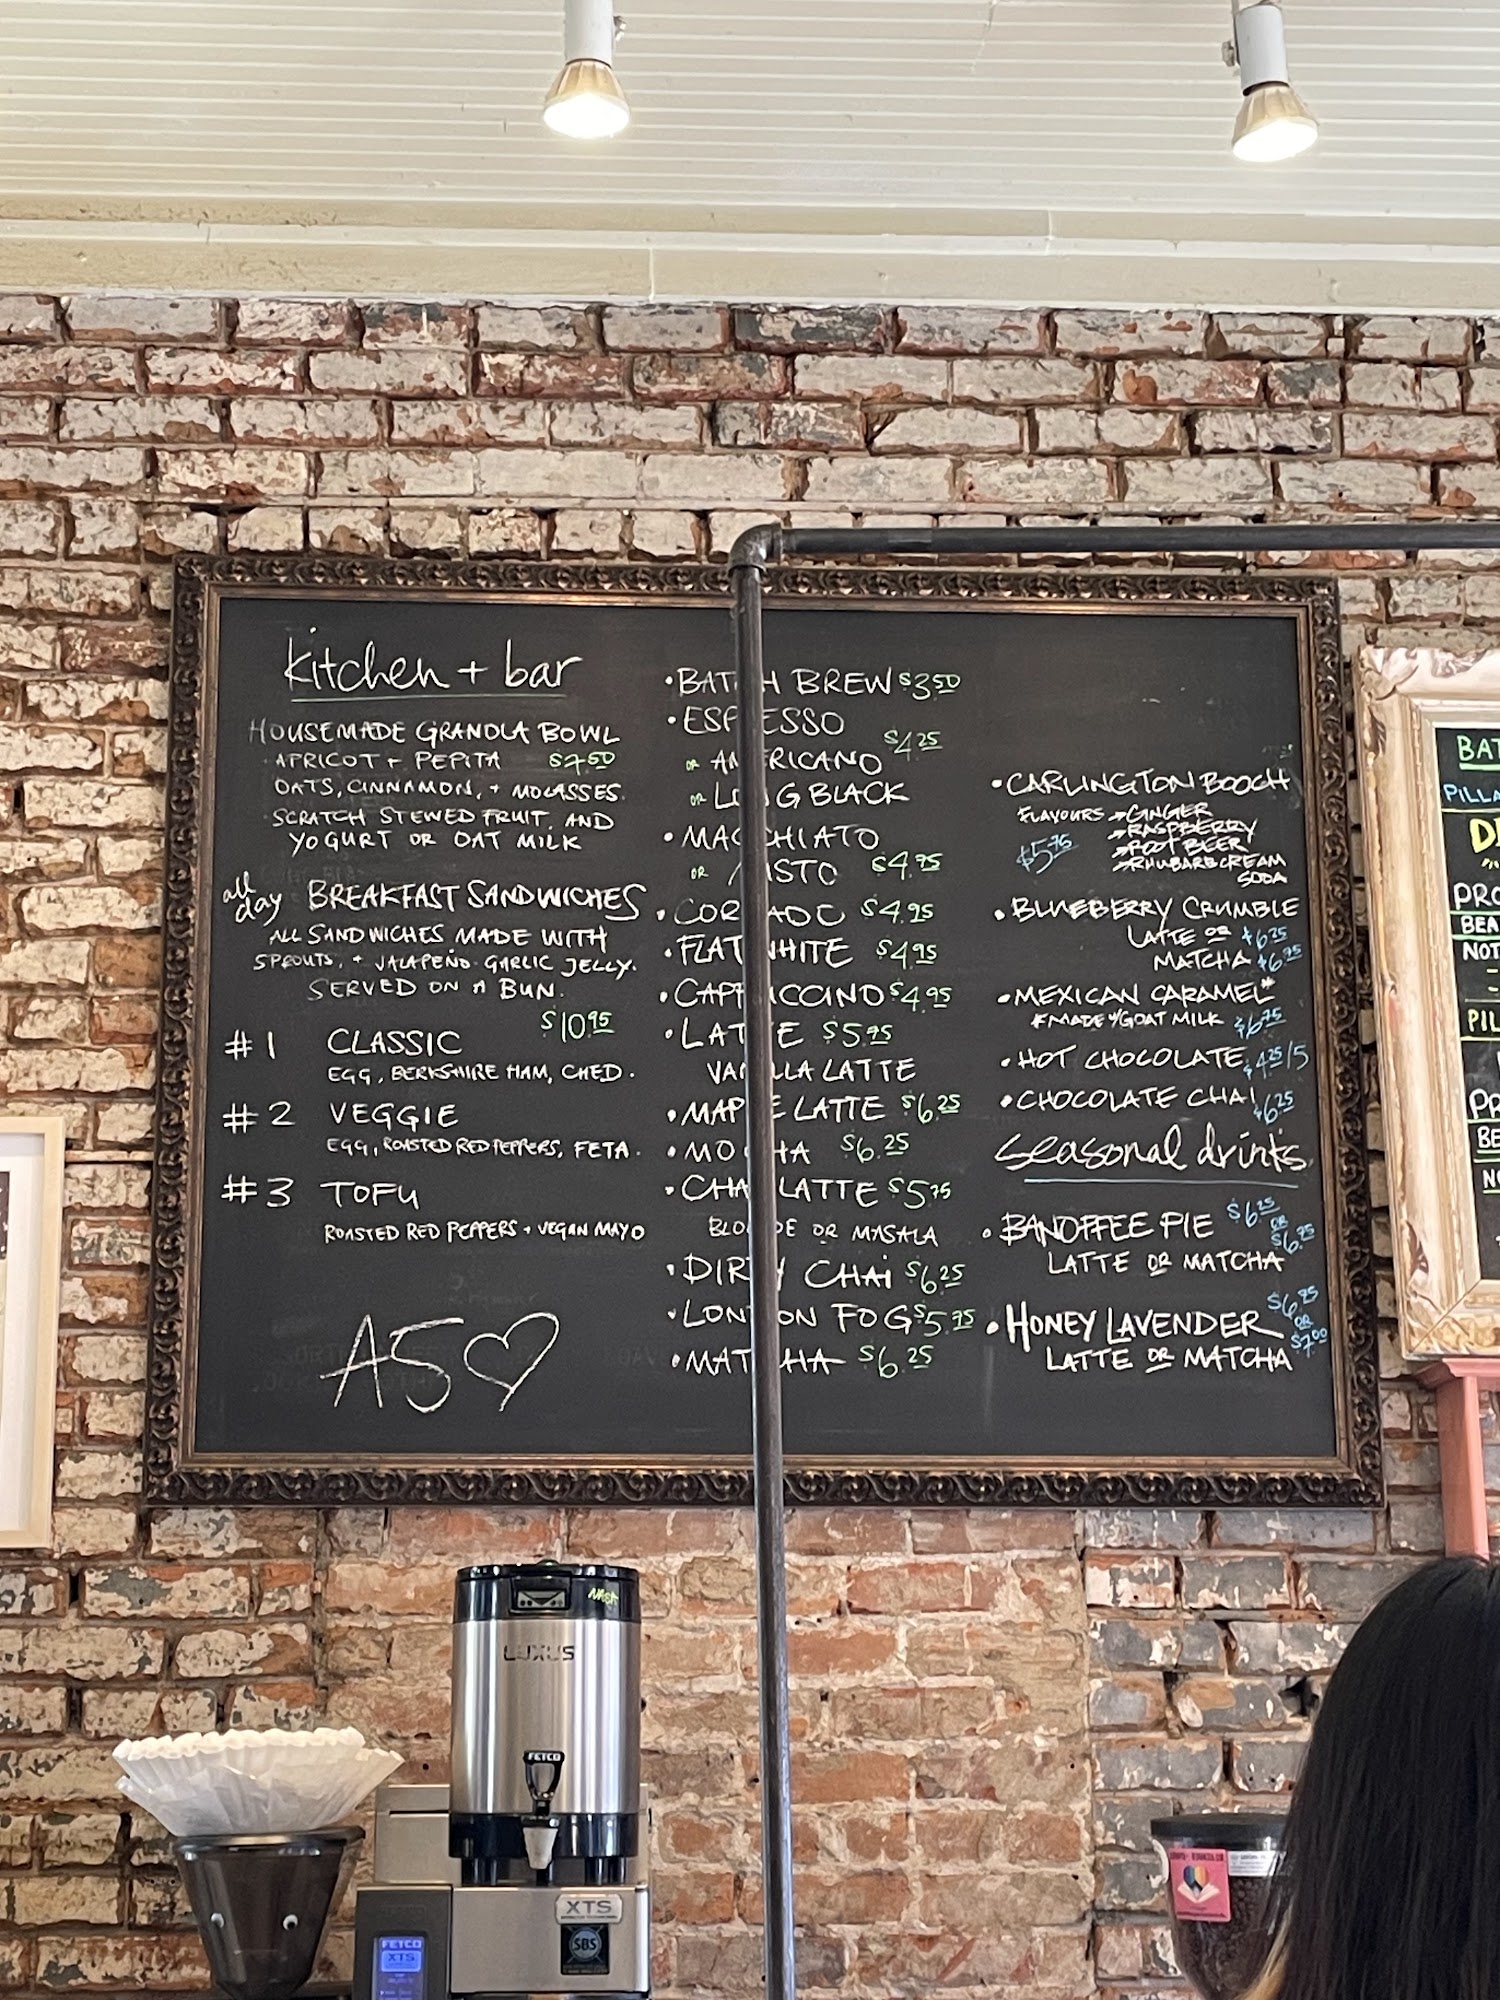 kitchen + bar
HOUSEMADE GRANOLA BOWL
APRICOT + PEPITA $7.50
OATS, CINNAMON, + MOLASSES.
SCRATCH STEWED FRUIT AND
YOGURT OR OAT MILK
all day BREAKFAST SANDWICHES
ALL SANDWICHES MADE WITH
SPROUTS, + JALAPEÑO GARLIC JELLY.
SERVED ON A BUN.
$10.95
#1 CLASSIC
EGG, BERKSHIRE HAM, CHED.
#2 VEGGIE
EGG, ROASTED RED PEPPERS, FETA.
#3 TOFU
ROASTED RED PEPPERS + VEGAN MAYO
A5♡
• BATCH BREW $3.50
• ESPRESSO
$4.25
OR AMERICANO
OR LONG BLACK
• MACCHIATO
OR MISTO $4.75
• CORTADO $4.95
• FLAT WHITE $4.95
• CAPPUCCINO $4.95
• LATTE $5.75
VANILLA LATTE
• MAPLE LATTE $6.25
• MOCHA $6.25
• CHAI LATTE $5.75
BLONDE OR MASALA
• DIRTY CHAI $6.25
• LONDON FOG $5.75
• MATCHA $6.25
• CARLINGTON BOOCH
FLAVOURS → GINGER
→ RASPBERRY
$5.75 → ROOT BEER
→ RHUBARB CREAM
SODA
• BLUEBERRY CRUMBLE
LATTE OR $6.25
MATCHA $6.75
• MEXICAN CARAMEL*
*MADE W/ GOAT MILK $6.75
• HOT CHOCOLATE $4.25/5
• CHOCOLATE CHAI $6.25
seasonal drinks
• BANOFFEE PIE $6.25 OR $6.75
LATTE OR MATCHA
• HONEY LAVENDER $6.75 OR $7.00
LATTE OR MATCHA
BAT
PILLA
PRO
BEA
NOT
PIL
BE
LUXUS
FETCO
XTS
SBS
FETCO
XTS